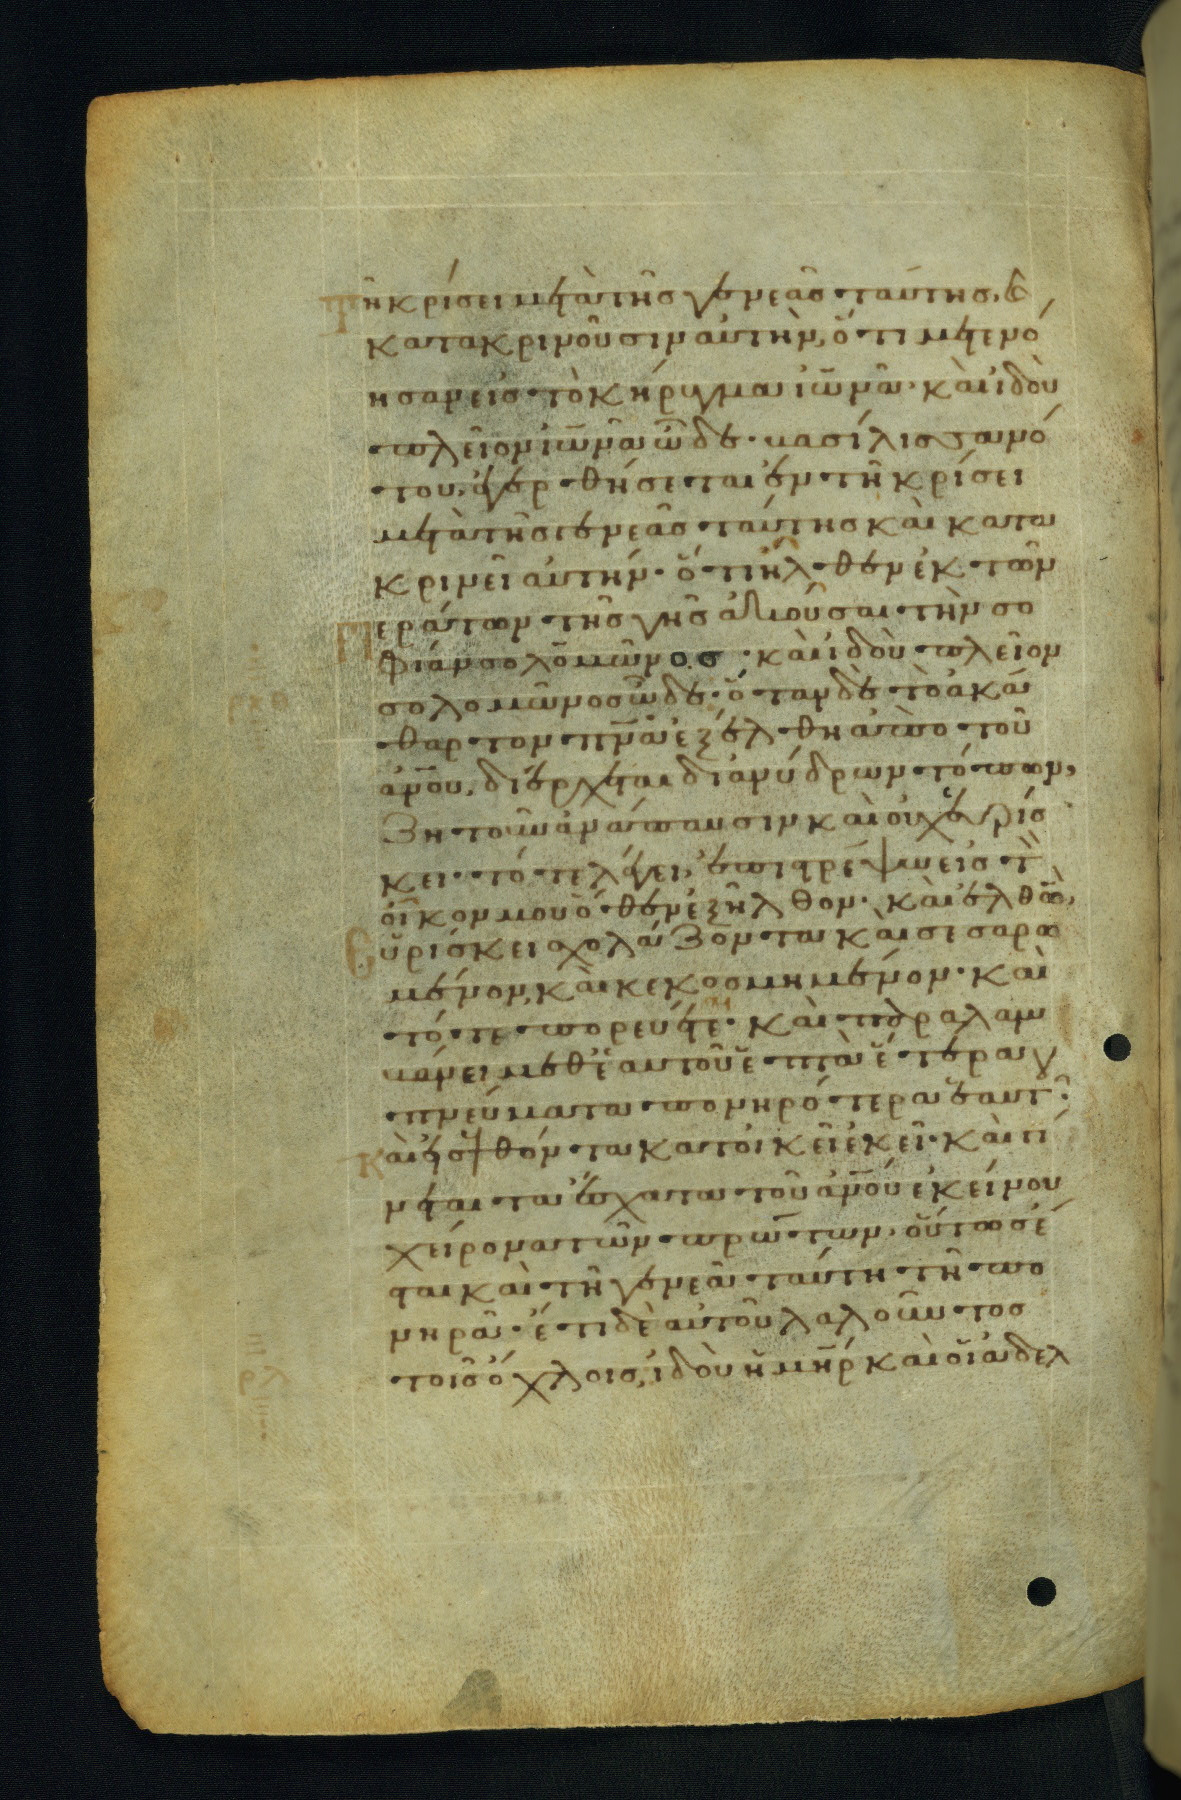 Τῆ κρίσει μετὰ τῆς γενεᾶς ταύτης, κ
κατακρινοῦσιν αὐτὴν, ὅτι μετενό
ησαν εἰς τὸ κήρυγμα ἰω̅νᾶ· καὶ ἰδοὺ
πλεῖον ἰω̅νᾶ ὧδε· βασίλισσα νό
του, ἐγερθήσεται ἐν τῆ κρίσει
μετὰ τῆς γενεᾶς ταύτης καὶ κατα
κρινεῖ αὐτήν· ὅτι ἦλθεν ἐκ τῶν
Περάτων τῆς γῆς ἀκοῦσαι τὴν σο
φίαν σολομῶνος· καὶ ἰδοὺ πλεῖον
σολομῶνος ὧδε· ὅταν δὲ τὸ ἀκά
θαρτον πν̅α ἐξέλθη ἀπὸ τοῦ
ἀν̅ου, διέρχεται δι ἀνύδρων τόπων,
ζητοῦν ἀνάπαυσιν καὶ οὐχ εὑρίσ
κει· τότε λέγει, ἐπιστρέψω εἰς τὸ
οἶκον μου ὅθεν ἐξῆλθον· καὶ ἐλθὸ,
Εὑρίσκει σχολάζοντα καὶ σεσαρω
μένον, καὶ κεκοσμημένον· καὶ
τότε πορεύεται· καὶ παραλαμ
βάνει μεθ' ἑαυτοῦ ἑπτὰ ἕτερα
πνεύματα πονηρότερα ἑαυτοῦ·
Καὶ εἰσελθόντα κατοικεῖ ἐκεῖ· καὶ γί
νεται τὰ ἔσχατα τοῦ ἀν̅ου ἐκείνου
χείρονα τῶν πρώτων· οὕτως ἔ
σται καὶ τῆ γενεᾶ ταύτη τῆ πο
νηρᾶ· ἔτι δὲ αὐτοῦ λαλοῦντος
τοῖς ὄχλοις, ἰδοὺ ἡ μη̅ρ καὶ οἱ ἀδελ